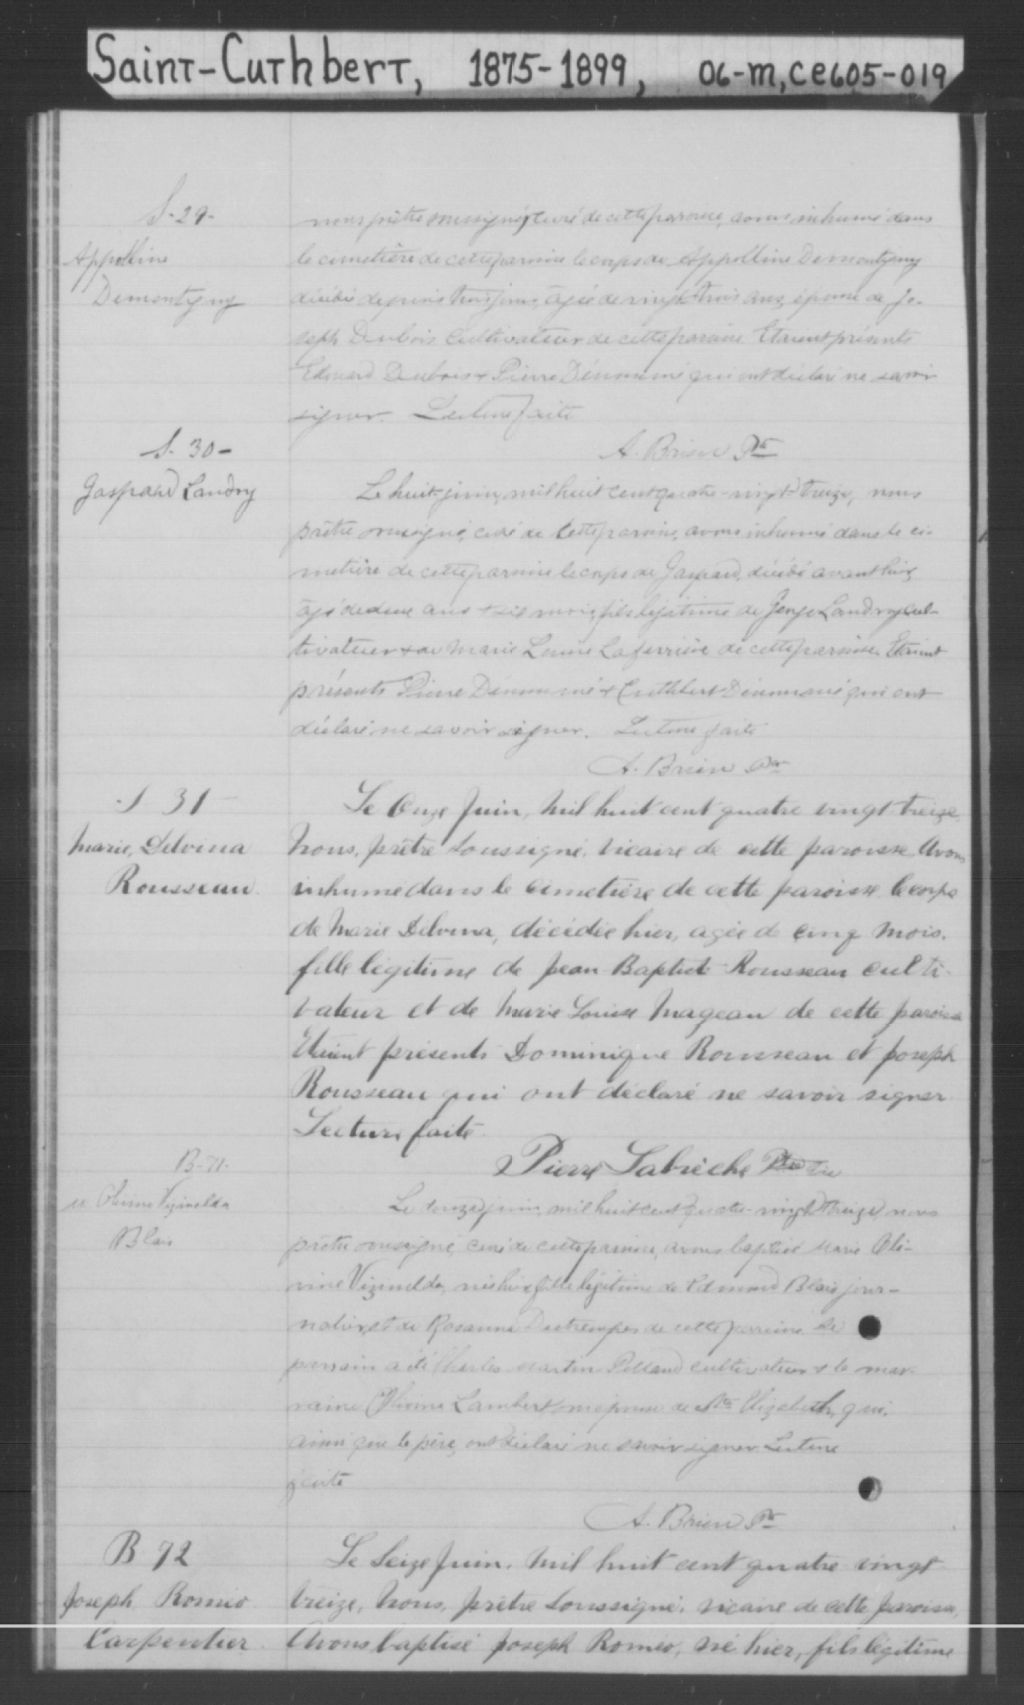 Saint-Cuthbert, 1875-1899, 06-M, CE605-019
S-29-
Appolline
Demontigny
nous prêtre soussigné, curé de cette paroisse, avons inhumé dans
le cimetière de cette paroisse le corps de Appolline Demontigny
décédé depuis trois jours, âgée de vingt trois ans, épouse de Jo-
seph Dubois cultivateur de cette paroisse Etaient présents
Edouard Dubois & Pierre Dénommé qui ont déclaré ne savoir
signer. Lecture faite
A. Brien Ptr
S. 30-
Gaspard Landry
Le huit juin, mil huit cent quatre-vingt-treize, nous
prêtre soussigné, curé de cette paroisse, avons inhumé dans le ci-
metière de cette paroisse le corps de Gaspard, décédé avant hier
âgé de deux ans & six mois, fils légitime de Landry cul-
tivateur & de Marie Louise Laferrière de cette paroisse. Etaient
présents Pierre Dénommé & Cuthbert Dénommé qui ont
déclaré ne savoir signer. Lecture faite
A. Brien Ptr
S 31
Marie, Delvina
Rousseau.
Le Onze Juin, mil huit cent quatre vingt treize,
Nous, prêtre soussigné, vicaire de cette paroisse Avons
inhumé dans le cimetière de cette paroisse le corps
de Marie Delvina, décédée hier, agée de cinq mois.
fille légitime de Jean-Baptiste Rousseau culti-
vateur et de Marie Louise Mageau de cette paroisse
Etaient présents Dominique Rousseau et Joseph
Rousseau qui ont déclaré ne savoir signer
Lecture faite.
Pierre Labrèche Ptre
B-71-
Blais
Le juin, mil huit cent quatre-vingt treize, nous
prêtre soussigné, curé de cette paroisse, avons baptisé Marie Oli-
vine née hier fille légitime de Edmond Blais jour-
nalier, et de Rosanna Destrempes de cette paroisse Le
parrain a été Charles Martin Pelland cultivateur & la mar-
raine Olivine Lambert son épouse de Ste Elizabeth, qui,
ainsi que le père, ont déclaré ne savoir signer Lecture
faite
A. Brien Ptr
B 72
Joseph Romeo
Carpentier.
Le Seize Juin, mil huit cent quatre vingt
treize, Nous, prêtre soussigné, vicaire de cette paroisse,
Avons baptisé Joseph Romeo, né hier, fils légitime